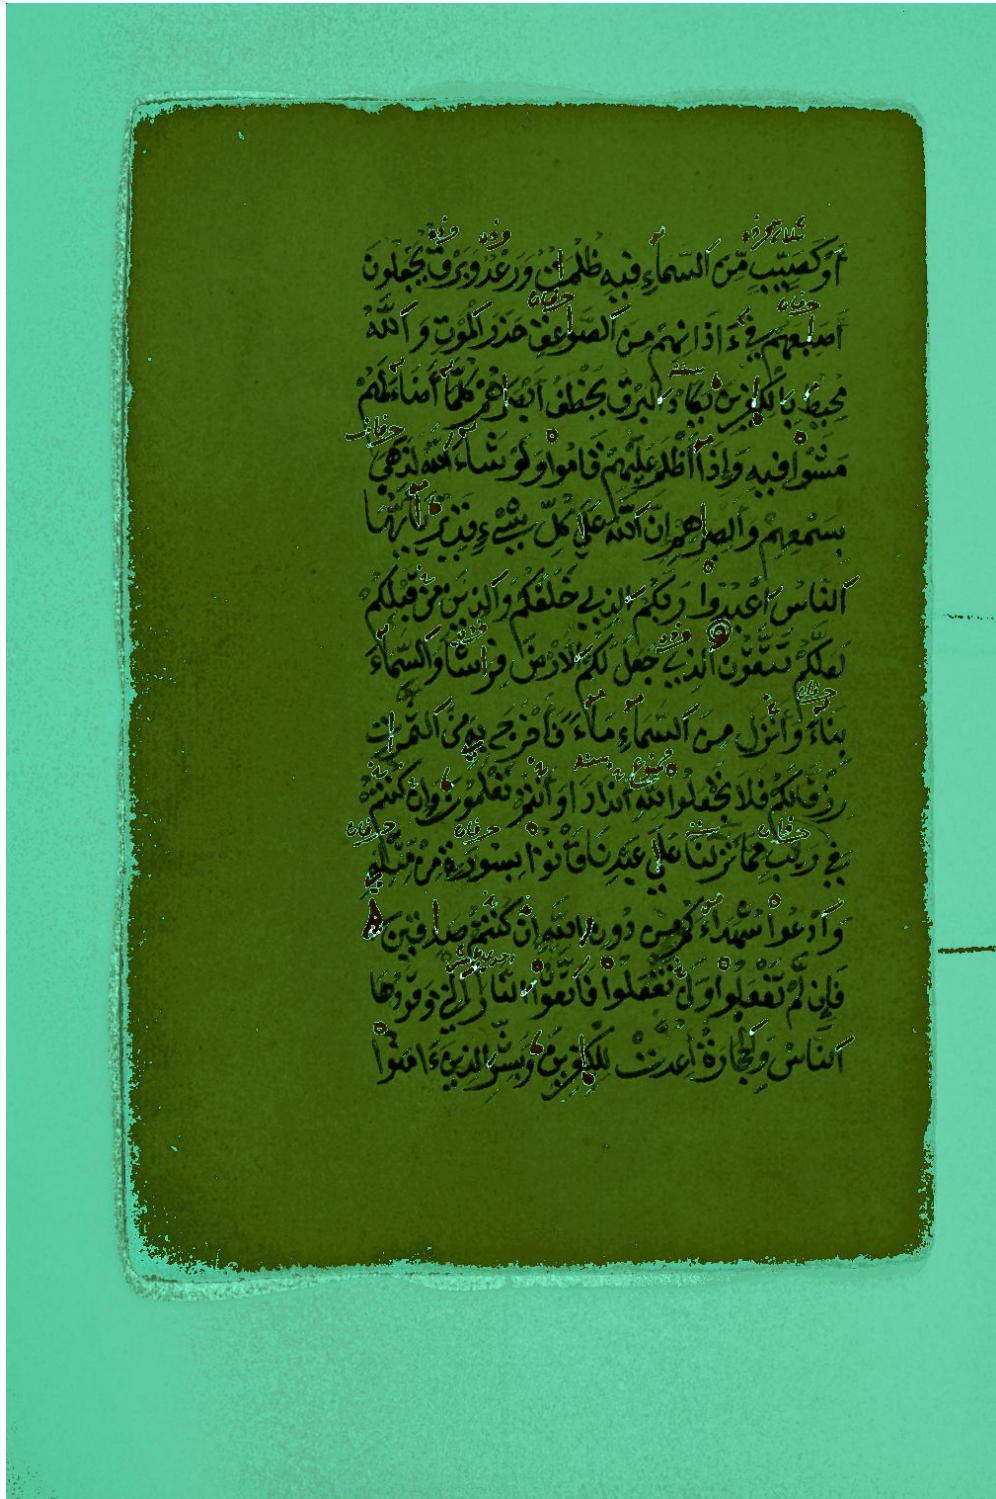 أَوْ كَصَيِّبٍ مِّنَ اَلسَّمَآءِ فِيهِ ظُلُمَٰتٌ وَرَعْدٌ وَبَرْقٌ يَجْعَلُونَ
أَصَٰبِعَهُمْ فِےٓ ءَاذَانِهِم مِّنَ اَلصَّوَٰعِقِ حَذَرَ اَلْمَوْتِ وَاَللَّهُ
مُحِيطٌ بِالْكَٰفِرِينَ يَكَادُ اَلْبَرْقُ يَخْطَفُ أَبْصَٰرَهُمْ كُلَّمَآ أَضَآءَ لَهُم
مَّشَوْاْ فِيهِ وَإِذَآ أَظْلَمَ عَلَيْهِمْ قَامُواْ وَلَوْ شَآءَ اَللَّهُ لَذَهَبَ
بِسَمْعِهِمْ وَأَبْصَٰرِهِمْ إِنَّ اَللَّهَ عَلَىٰ كُلِّ شَےْءٍ قَدِيرٌ يَٰٓأَيُّهَا
اَلنَّاسُ اُعْبُدُواْ رَبَّكُمُ اُلذِے خَلَقَكُمْ وَالذِينَ مِن قَبْلِكُمْ
لَعَلَّكُمْ تَتَّقُونَ اَلذِے جَعَلَ لَكُمُ اُلَارْضَ فِرَٰشاً وَالسَّمَآءَ
بِنَآءً وَأَنزَلَ مِنَ اَلسَّمَآءِ مَآءً فَأَخْرَجَ بِهِۦ مِنَ اَلثَّمَرَٰتِ
رِزْقاً لَّكُمْ فَلَا تَجْعَلُواْ لِلهِ أَندَاداً وَأَنتُمْ تَعْلَمُونَ وَإِن كُنتُمْ
فِے رَيْبٍ مِّمَّا نَزَّلْنَا عَلَىٰ عَبْدِنَا فَاتُواْ بِسُورَةٍ مِّن مِّثْلِهِۦ
وَادْعُواْ شُهَدَآءَكُم مِّن دُونِ اِللَّهِ إِن كُنتُمْ صَٰدِقِينَ
فَإِن لَّمْ تَفْعَلُواْ وَلَن تَفْعَلُواْ فَاتَّقُواْ اُلنَّارَ اَلتِے وَقُودُهَا
اَلنَّاسُ وَالْحِجَارَةُ أُعِدَّتْ لِلْكَٰفِرِينَ وَبَشِّرِ اِلذِينَ ءَامَنُواْ